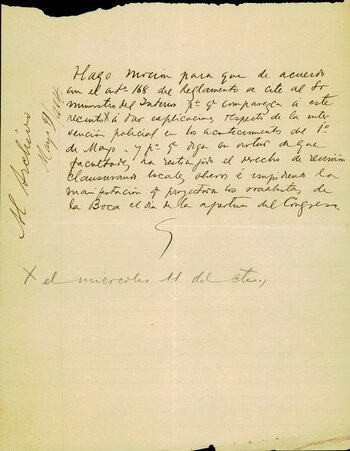 Hago mocion para que de acuerdo
con el artº 168 del Reglamento se cite al Sr
ministro del Interior pª q' comparezca a este
recinto á dar esplicaciones respecto de la inter
vención policial en los acontecimientos del 1º
de Mayo - y pª q' diga en virtud de que
facultades, ha restinjido el derecho de reunión
clausurando locales obreros é impidiendo la
manifestacion q' proyectaban los socialistas de
la Boca el día de la apertura del Congreso
X el miercoles 11 del cte.,
Al Archivo
Mayo 9/